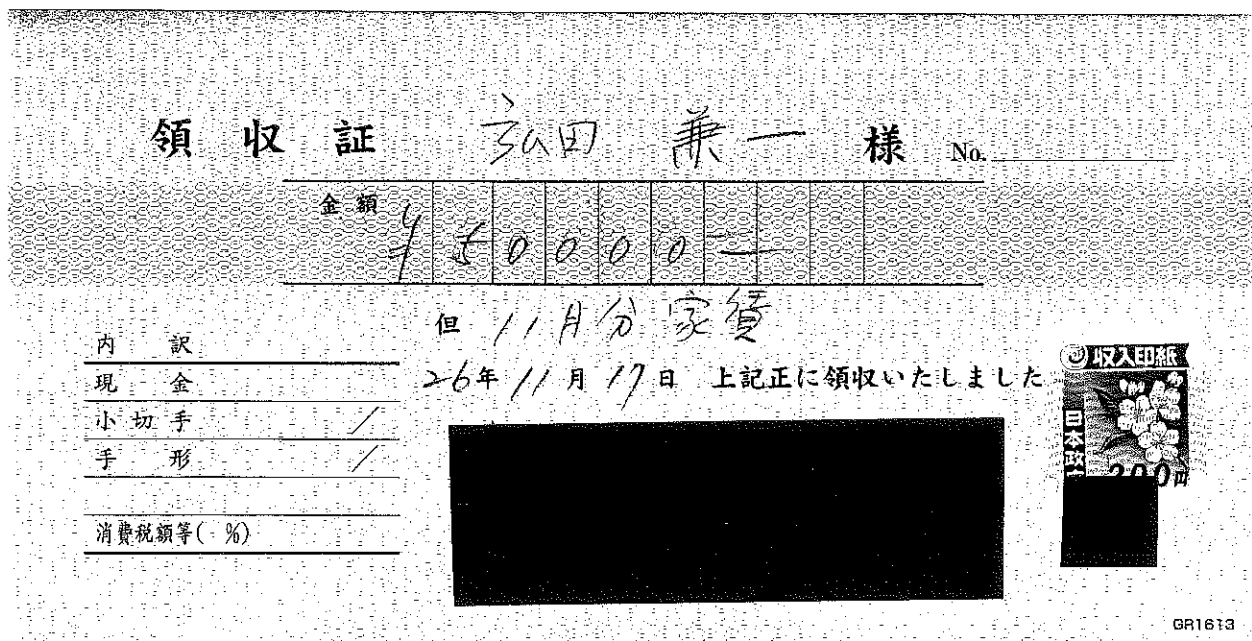 領収証 弘田 兼一 様 No.
金額 ¥50000-
但 11月分家賃
26年11月17日 上記正に領収いたしました
内訳
現金
小切手 /
手形 /
消費税額等( %)
収入印紙
日本政
200円
GR1613